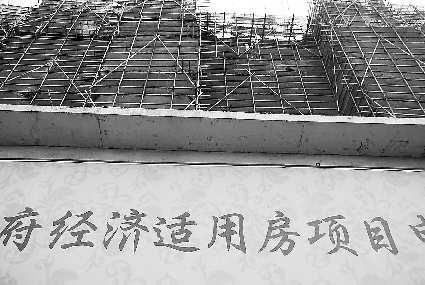 府经济适用房项目